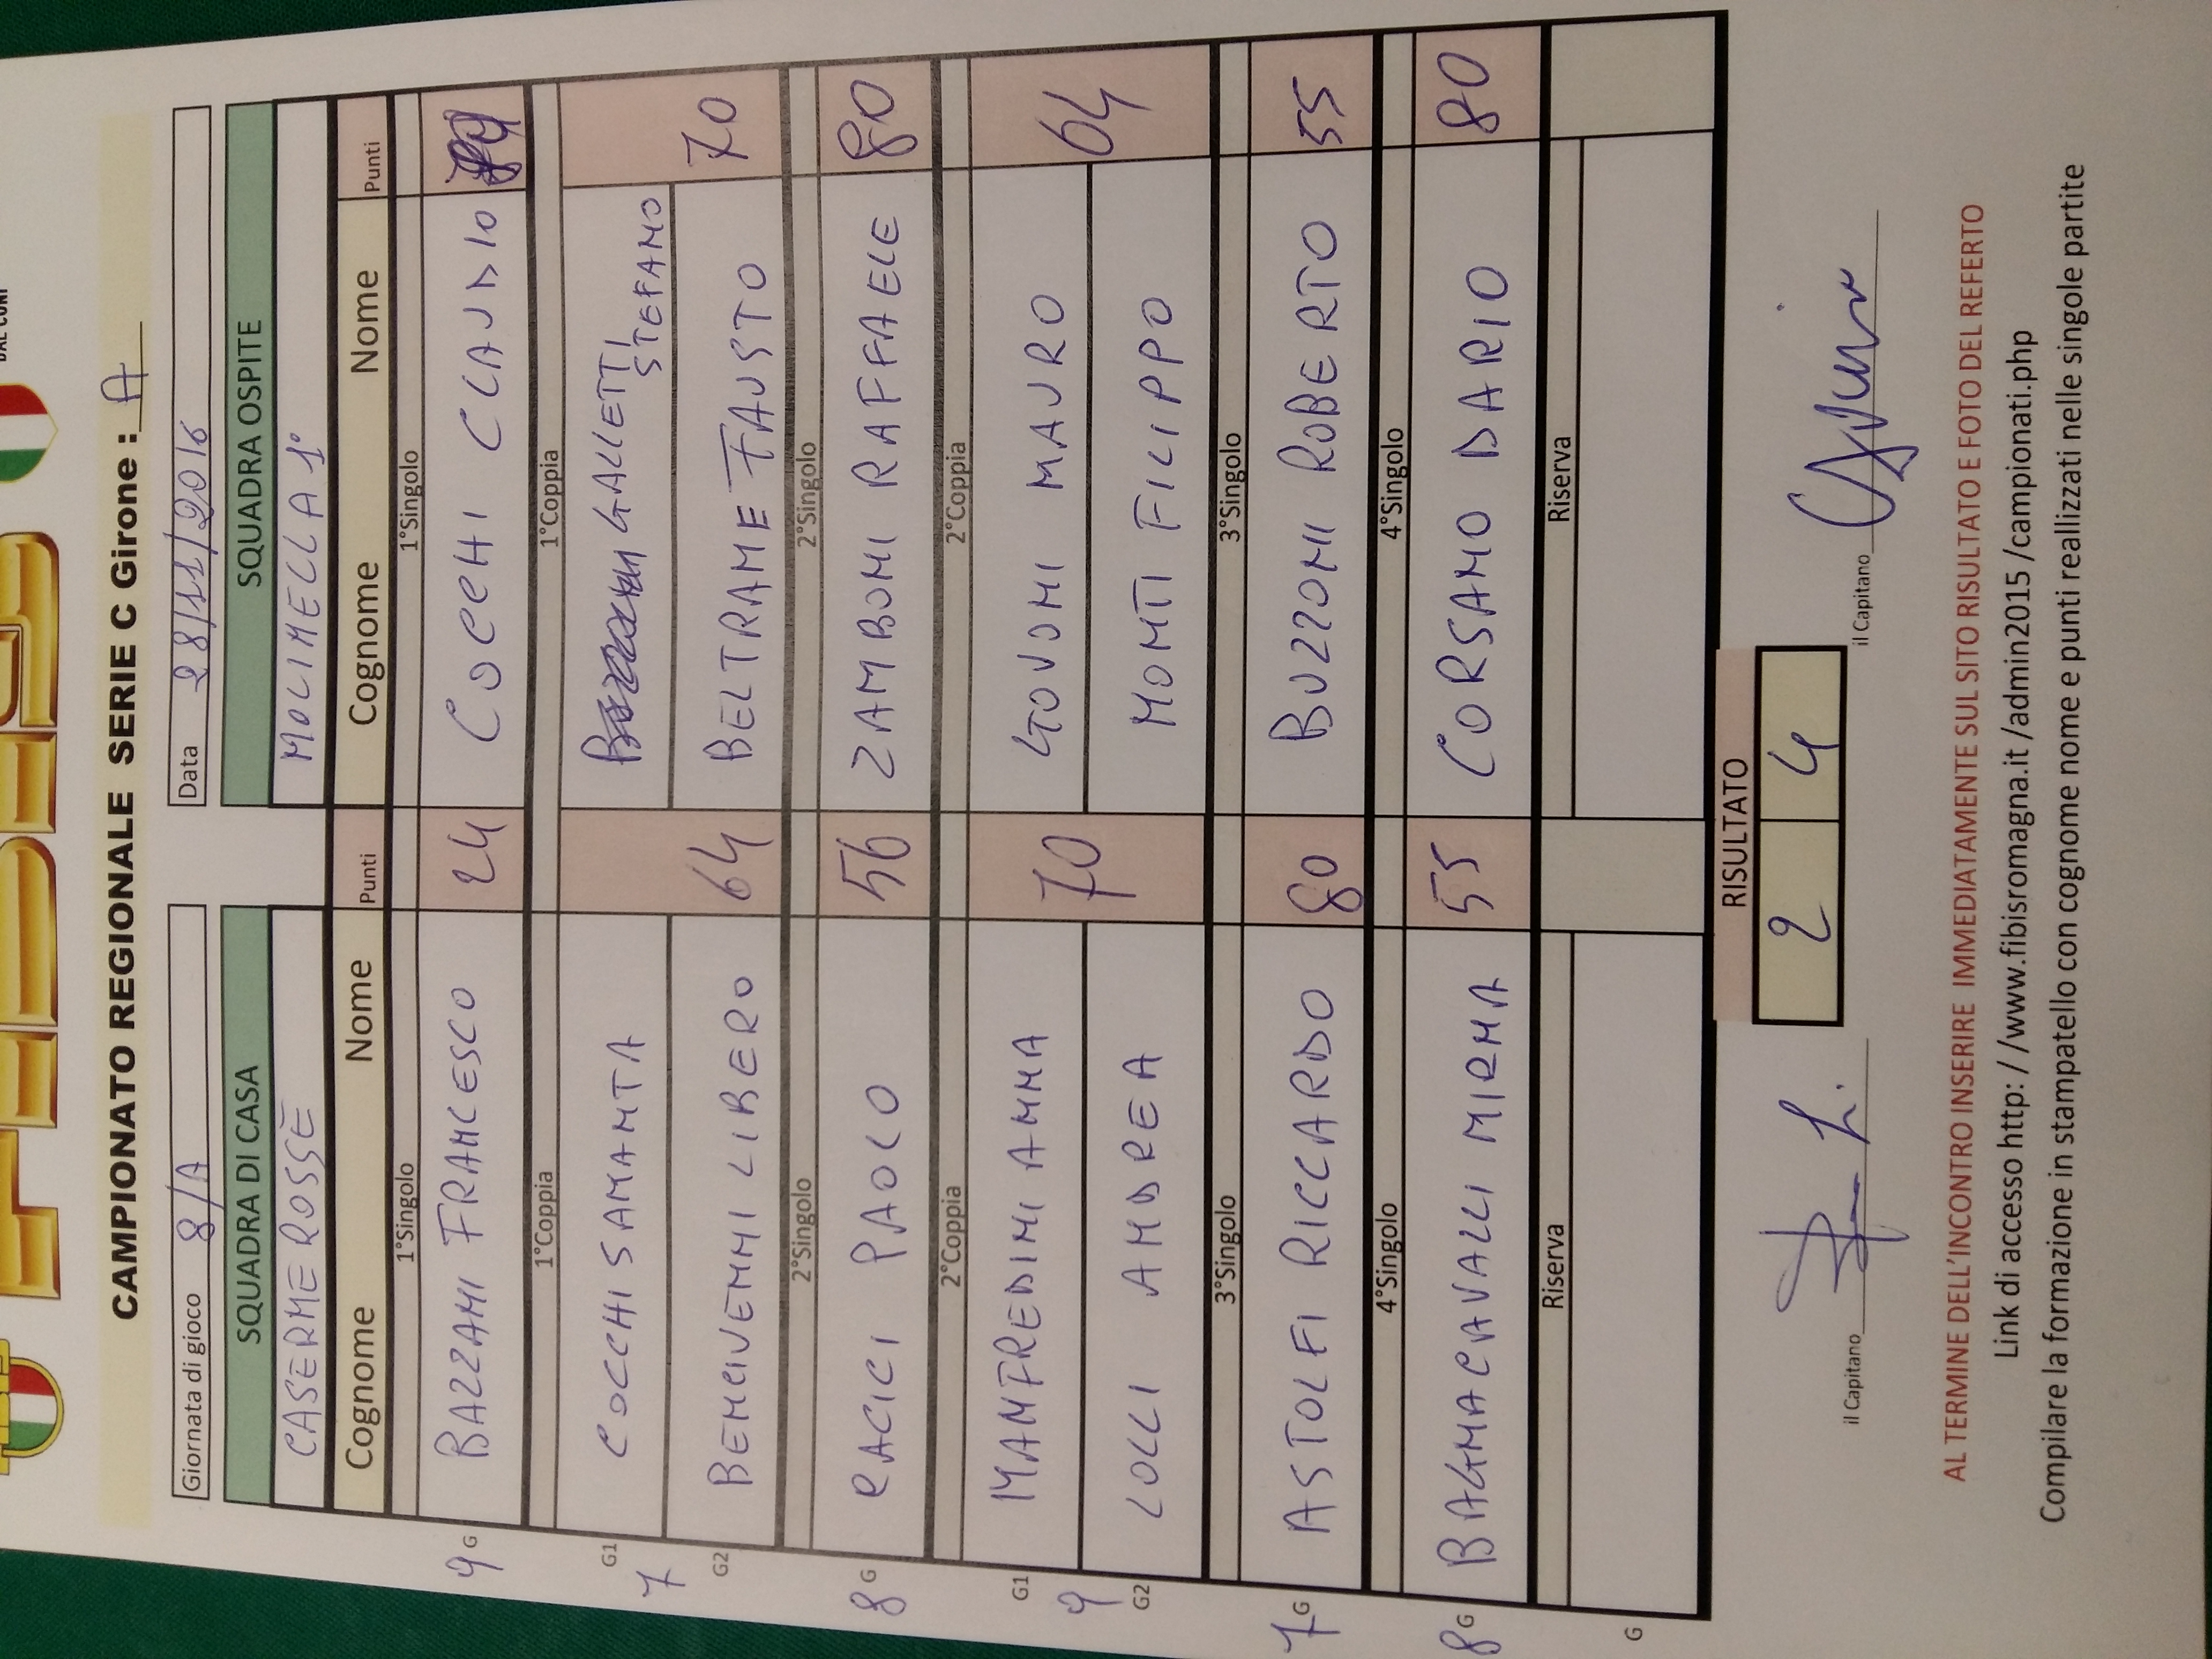 CAMPIONATO REGIONALE SERIE C Girone : A
Giornata di gioco 8/A Data 28/11/2016
SQUADRA DI CASA SQUADRA OSPITE
CASERME ROSSE MOLINELLA 1°
Cognome Nome Punti Cognome Nome Punti
1°Singolo 1°Singolo
9 G BAZZANI FRANCESCO 24 COCCHI CLAUDIO
1°Coppia 1°Coppia
G1 COCCHI SAMANTA GALLETTI STEFANO
7
G2 BENCIVENNI LIBERO 64 BELTRAME FAUSTO 70
2°Singolo 2°Singolo
8 G RACICI PAOLO 56 ZAMBONI RAFFAELE 80
2°Coppia 2°Coppia
G1 MANFREDINI ANNA GOVONI MAURO
9 70 64
G2 LOLLI ANDREA MONTI FILIPPO
3°Singolo 3°Singolo
7 G ASTOLFI RICCARDO 80 BUZZONI ROBERTO 55
4°Singolo 4°Singolo
8 G BAGNACAVALLI MIRNA 55 CORSANO DARIO 80
Riserva Riserva
G
RISULTATO
2 4
il Capitano il Capitano
AL TERMINE DELL'INCONTRO INSERIRE IMMEDIATAMENTE SUL SITO RISULTATO E FOTO DEL REFERTO
Link di accesso http: / /www.fibisromagna.it /admin2015 /campionati.php
Compilare la formazione in stampatello con cognome nome e punti reallizzati nelle singole partite